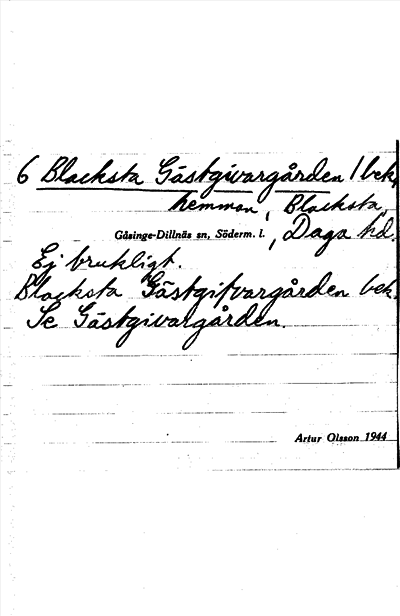 6 Blacksta Gästgivargården / bek.
hemman, Blacksta,
Gåsinge-Dillnäs sn, Söderm. l., Daga hd.
Ej brukligt.
Blacksta Gästgifvargården bek.
Se Gästgivargården.
Artur Olsson 1944